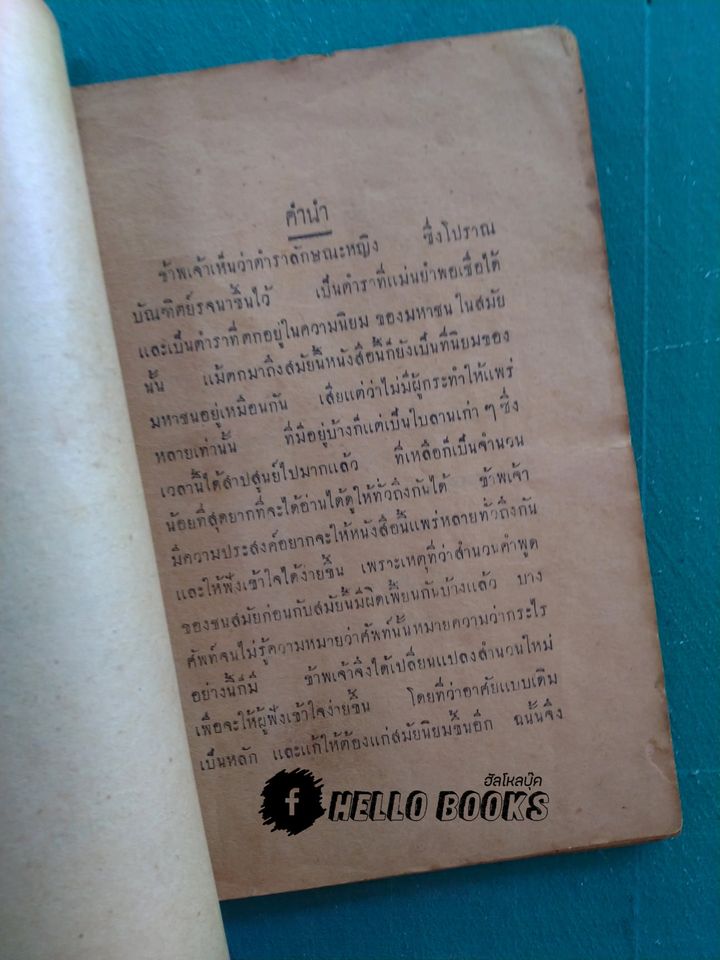 คำนำ
ข้าพเจ้าเห็นว่าตำราลักษณะหญิง ซึ่งโปราณ
บัณฑิตย์รจนาขึ้นไว้ เป็นตำราที่แม่นยำพอเชื่อได้
และเป็นตำราที่ตกอยู่ในความนิยม ของมหาชน ในสมัย
นั้น แม้ตกมาถึงสมัยนี้หนังสือนี้ก็ยังเป็นที่นิยมของ
มหาชนอยู่เหมือนกัน เสียแต่ว่าไม่มีผู้กระทำให้แพร่
หลายเท่านั้น ที่มีอยู่บ้างก็แต่เป็นใบลานเก่า ๆ ซึ่ง
เวลานี้ได้สาปสูนย์ไปมากแล้ว ที่เหลือก็เป็นจำนวน
น้อยที่สุดยากที่จะได้อ่านได้ดูให้ทั่วถึงกันได้ ข้าพเจ้า
มีความประสงค์อยากจะให้หนังสือนี้แพร่หลายทั่วถึงกัน
และให้ฟังเข้าใจได้ง่ายขึ้น เพราะเหตุที่ว่าสำนวนคำพูด
ของชนสมัยก่อนกับสมัยนี้มีผิดเพี้ยนกันบ้างแล้ว บาง
ศัพท์จนไม่รู้ความหมายว่าศัพท์นั้นหมายความว่ากระไร
อย่างนี้ก็มี ข้าพเจ้าจึงได้เปลี่ยนแปลงสำนวนใหม่
เพื่อจะให้ผู้ฟังเข้าใจง่ายขึ้น โดยที่ว่าอาศัยแบบเดิม
เป็นหลัก และแก้ให้ต้องแก่สมัยนิยมขึ้นอีก ฉนั้นจึง
ฮัลโหลบุ๊ค
f HELLO BOOKS